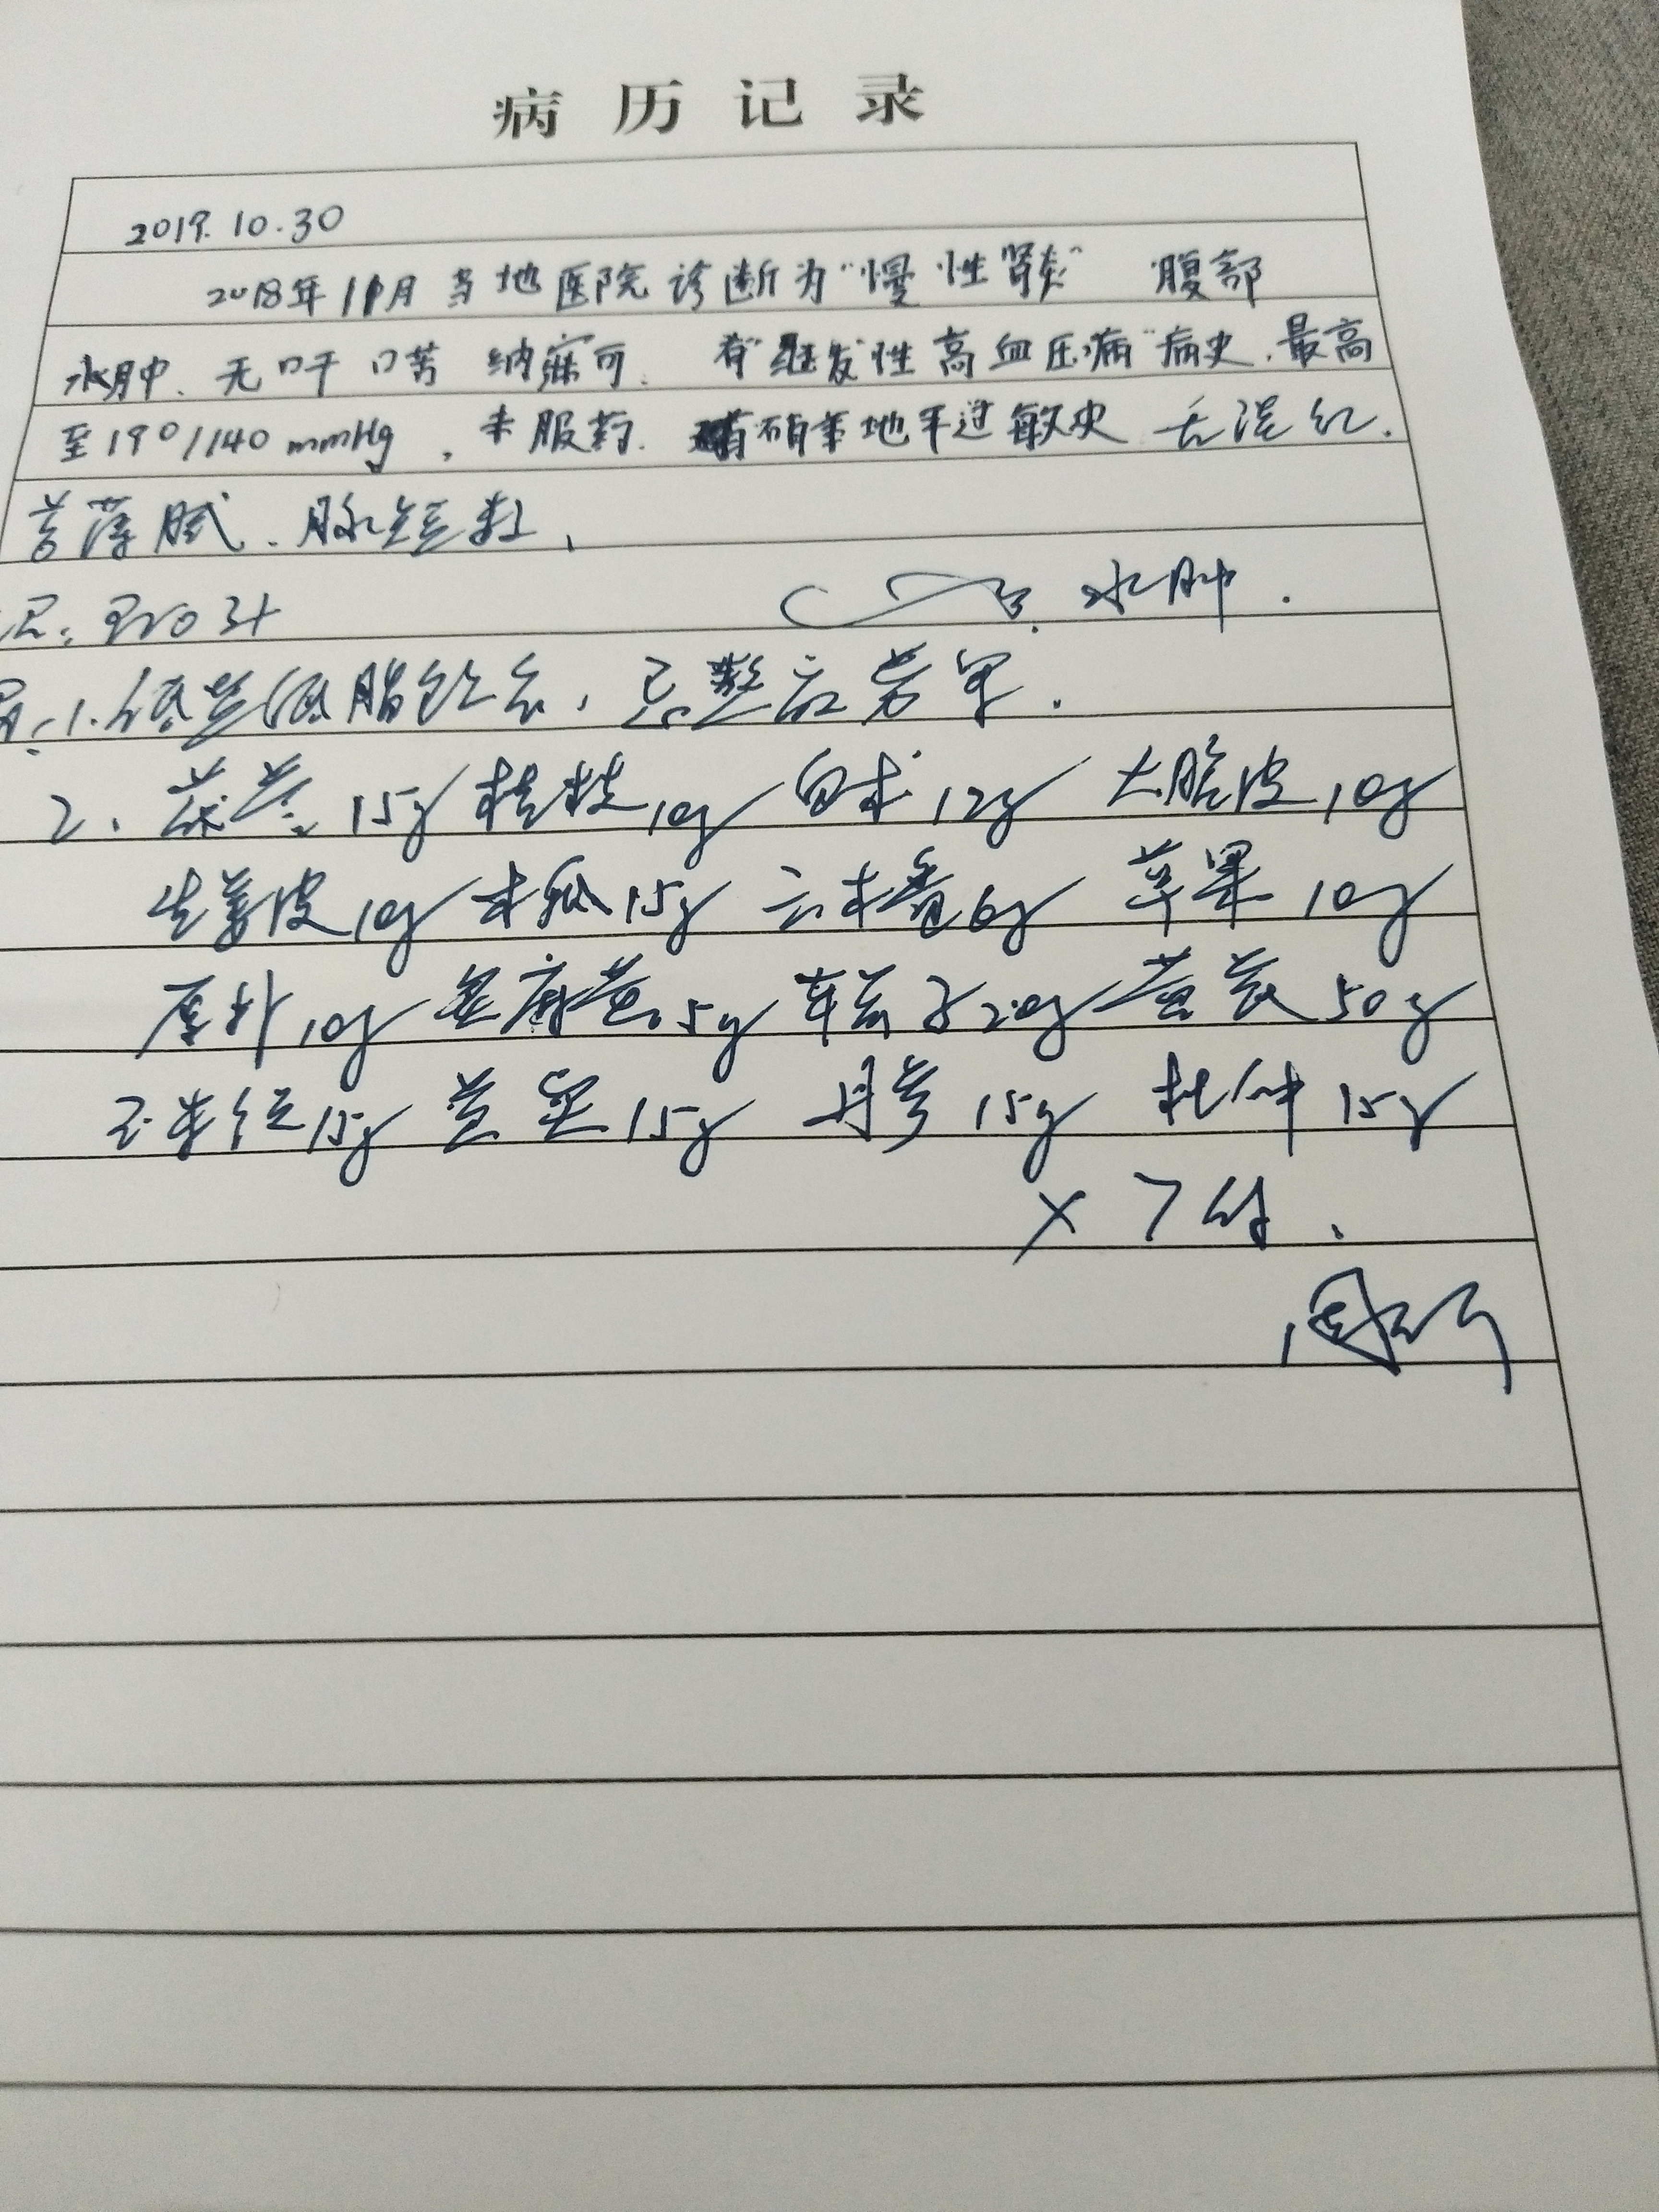 病历记录
2019.10.30
2018年11月当地医院诊断为"慢性肾炎" 腹部
水肿、无口干口苦 纳寐可. 有"继发性高血压病"病史,最高
至190/140mmHg,未服药. 有硝苯地平过敏史 舌淡红.
苔薄腻.脉短数,
Pro 3+ 水肿.
1.低盐低脂饮食,忌
2. 茯苓15g 桂枝10g 白术12g 大腹皮10g
生姜皮10g 木瓜15g 云木香6g 草果10g
厚朴10g 炙麻黄5g 车前子20g 黄芪50g
15g 芡实15g 丹参15g 杜仲15g
×7付.